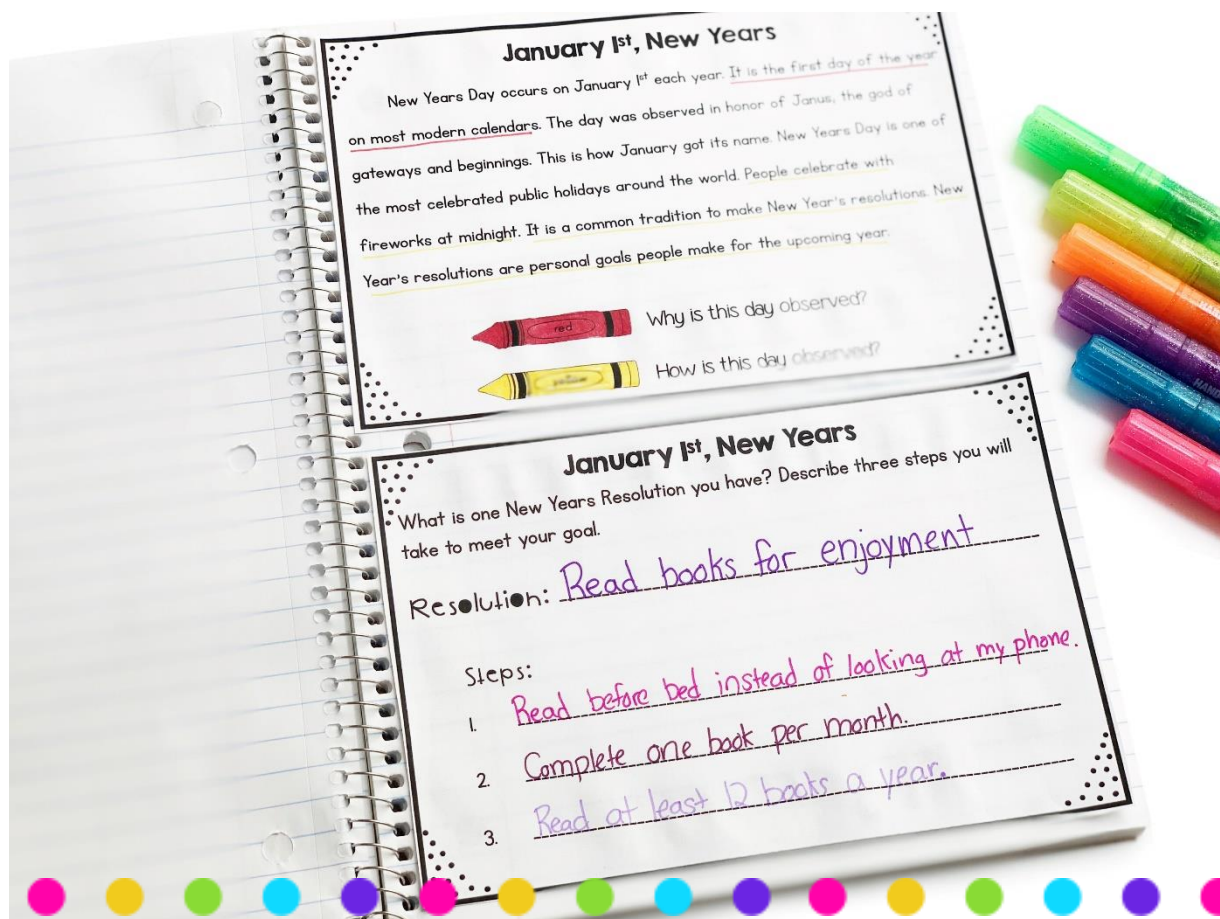 January 1st, New Years
New Years Day occurs on January 1st each year. It is the first day of the year
on most modern calendars. The day was observed in honor of Janus, the god of
gateways and beginnings. This is how January got its name. New Years Day is one of
the most celebrated public holidays around the world. People celebrate with
fireworks at midnight. It is a common tradition to make New Year's resolutions. New
Year's resolutions are personal goals people make for the upcoming year.
red
Why is this day observed?
yellow
How is this day observed?
January 1st, New Years
What is one New Years Resolution you have? Describe three steps you will
take to meet your goal.
Resolution: Read books for enjoyment
Steps:
1. Read before bed instead of looking at my phone.
2. Complete one book per month.
3. Read at least 12 books a year.